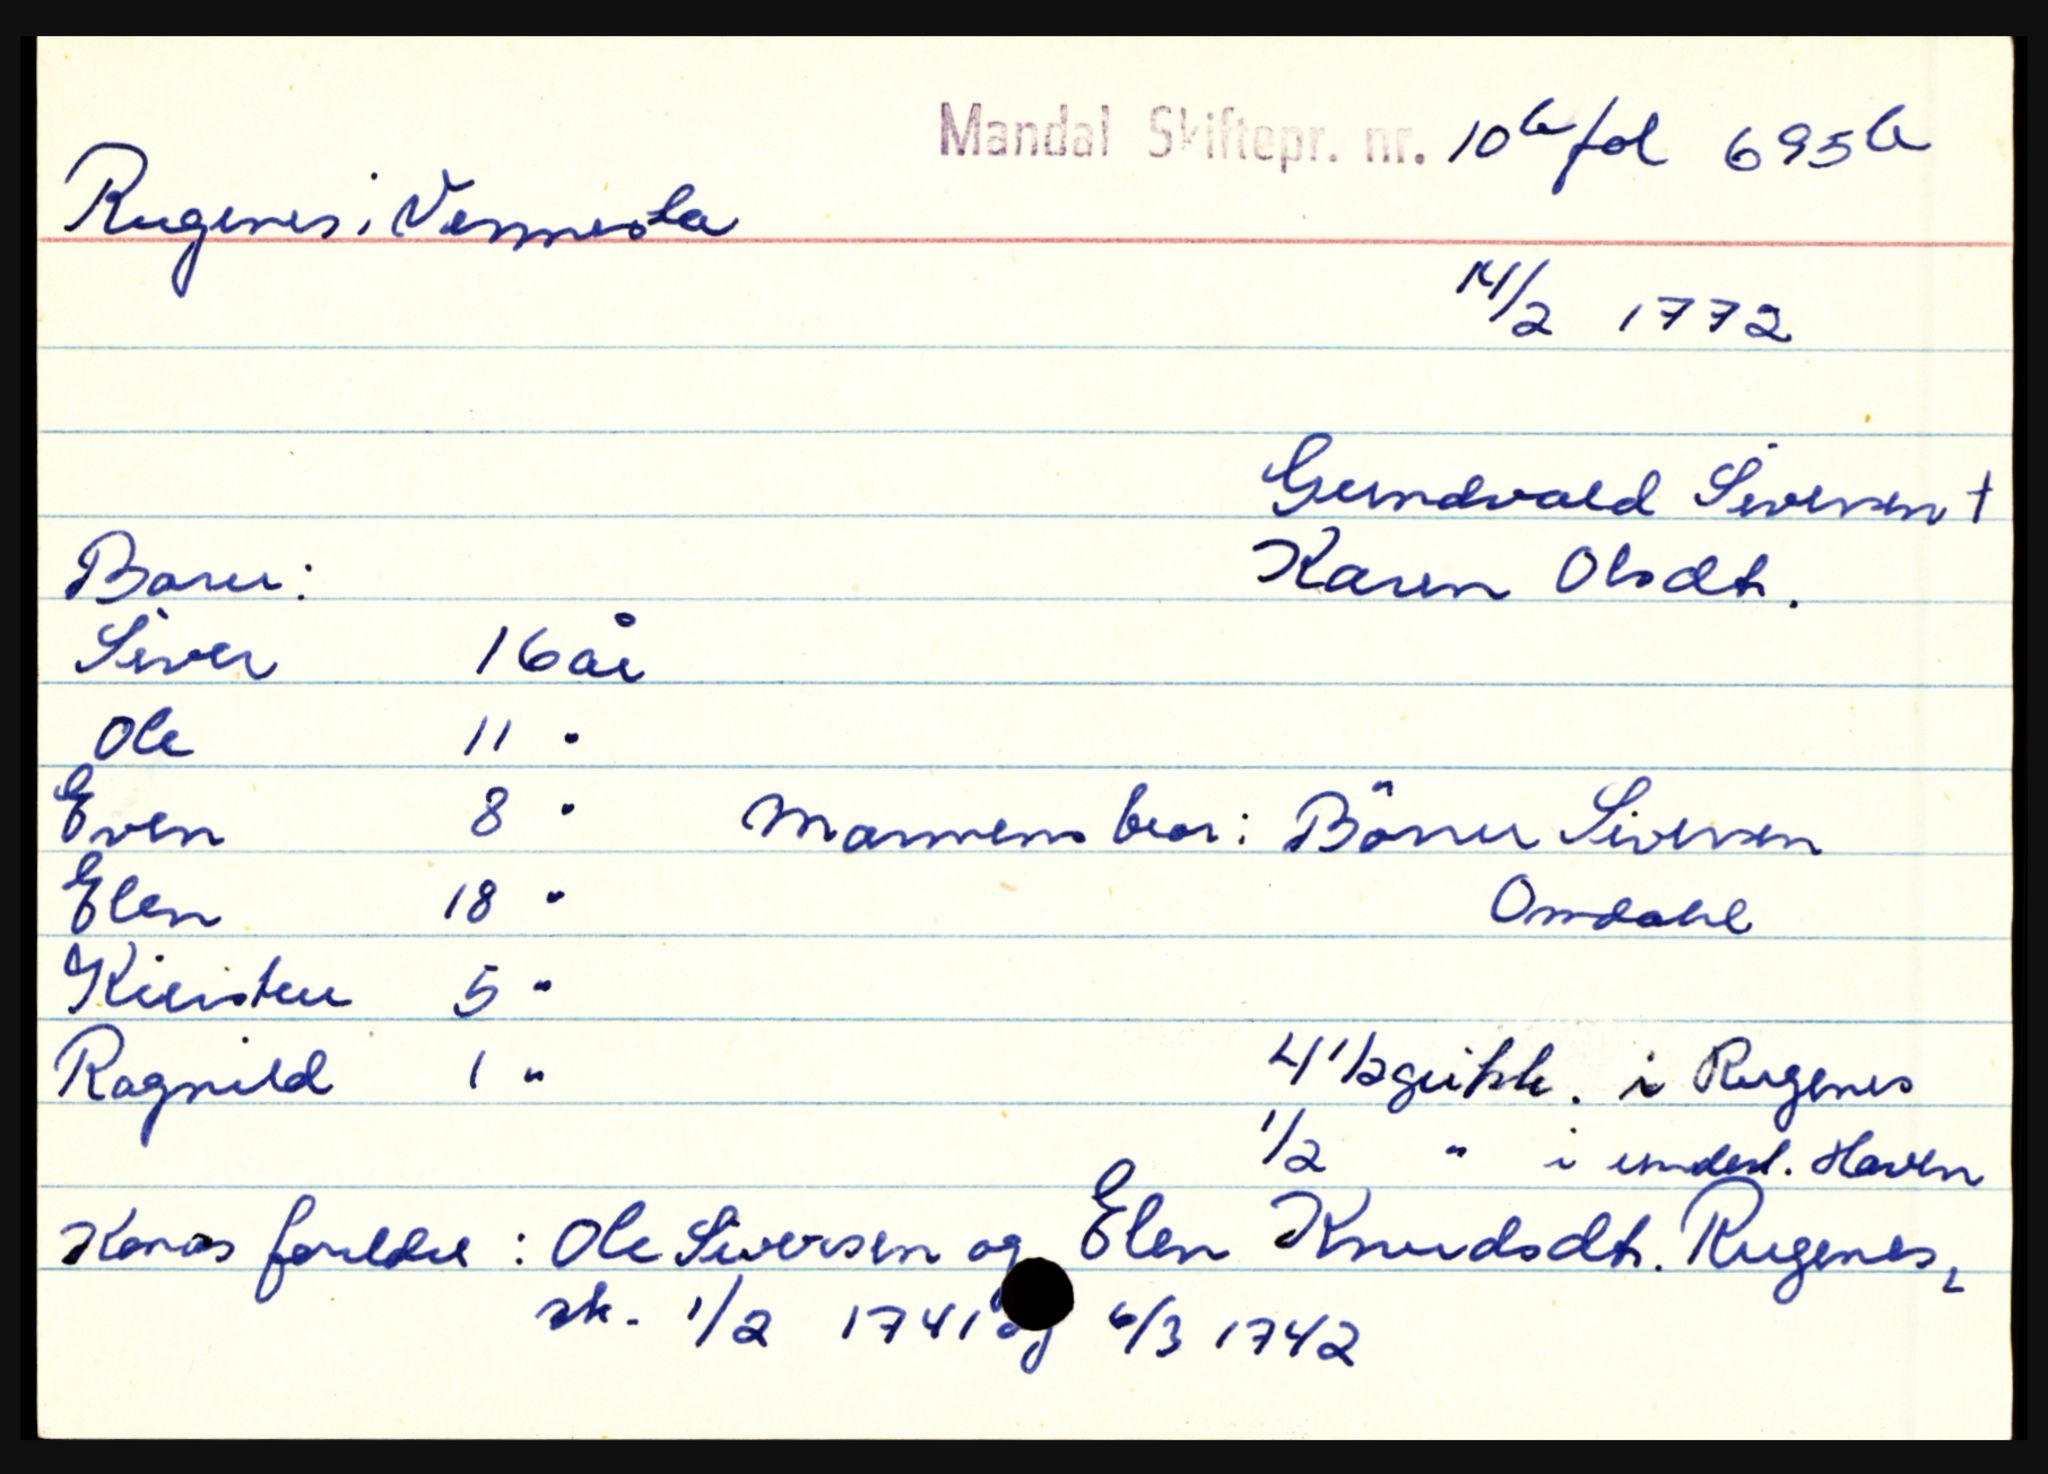 Mandal Skiftepr. nr. 10b fol 695b
Rugenes i Vennesla
14/2 1772
Gundvald Siversen †
Karen Olsdt.
Barn:
Siver 16 år
Ole 11 "
Even 8 " Mannens bror: Börru Siversen
Elen 18 " Omdahl
Kiersten 5 "
Ragnild 1 "
4 1/2 gulsk. i Rugenes
1/2 " i underl. Haven
Konas foreldre: Ole Siversen og Elen Knudsdt. Rugenes,
sk. 1/2 1741 og 6/3 1742